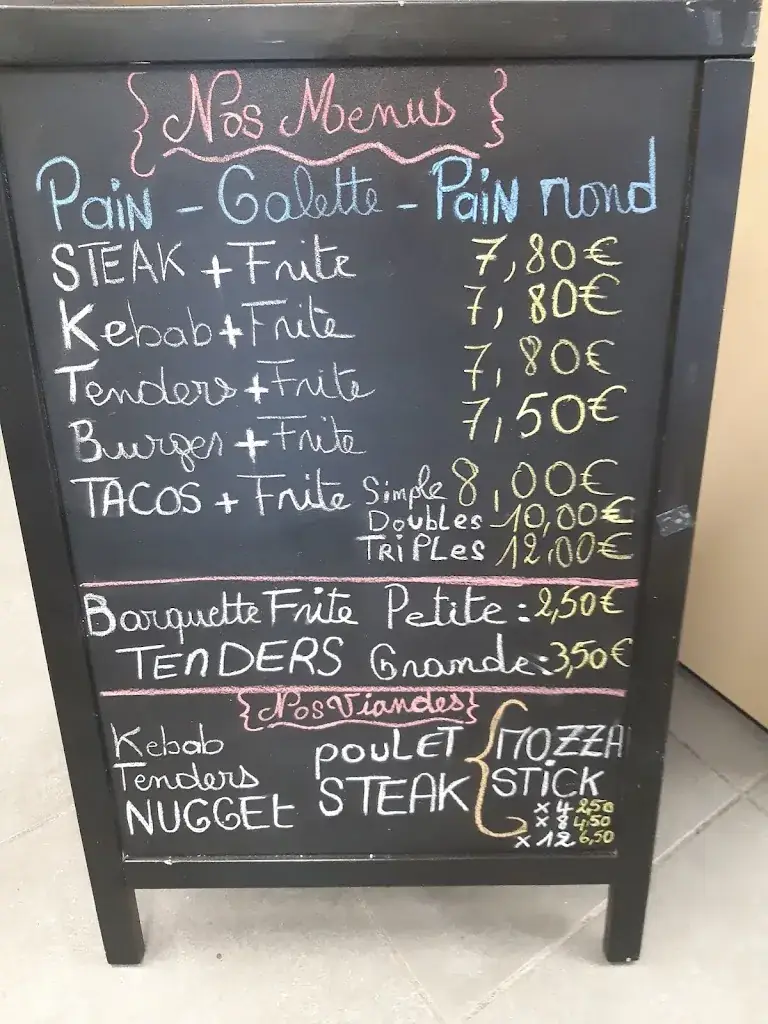 { Nos Menus }
Pain - Galette - Pain rond
STEAK + Frite 7,80€
Kebab + Frite 7,80€
Tenders + Frite 7,80€
Burger + Frite 7,50€
TACOS + Frite Simple 8,00€
Doubles 10,00€
TRIPLES 12,00€
Barquette Frite Petite : 2,50€
TENDERS Grande : 3,50€
{ Nos Viandes }
Kebab POULET { MOZZA
Tenders STEAK STICK
NUGGEt x 4 2,50
x 8 4,50
x 12 6,50